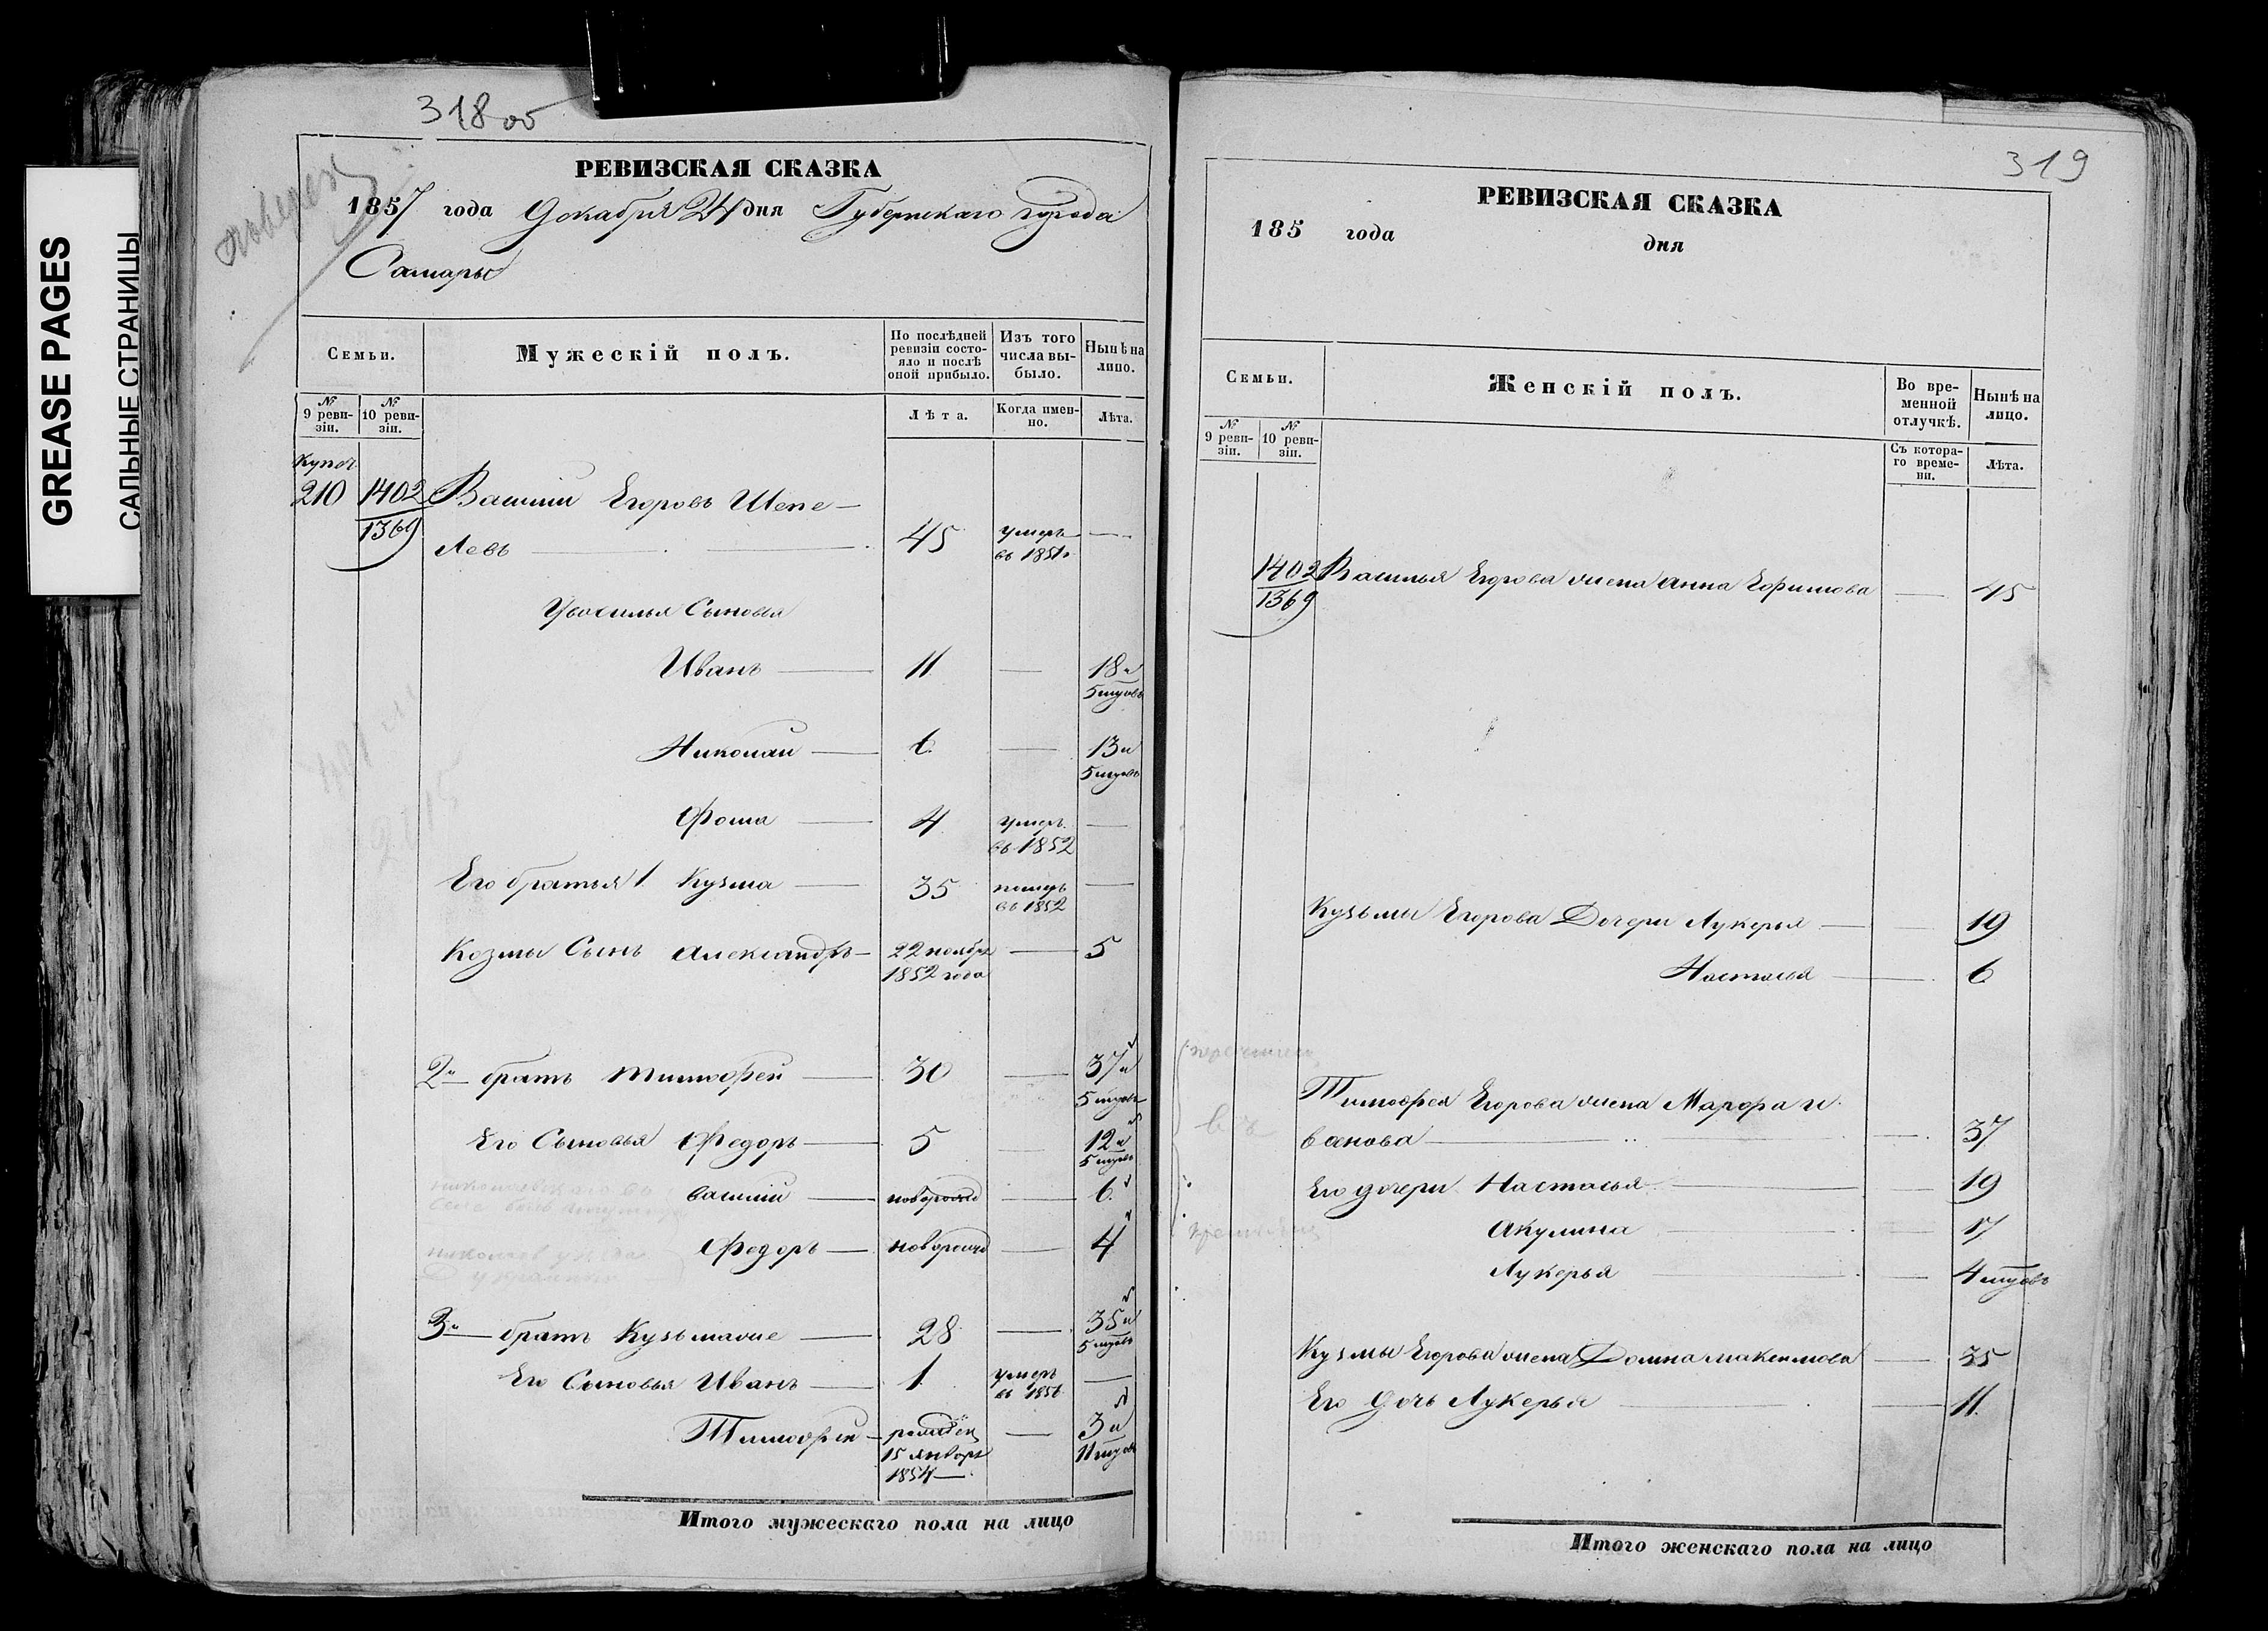 GREASE PAGES
САЛЬНЫЕ СТРАНИЦЫ
318об
РЕВИЗСКАЯ СКАЗКА
1857 года Декабря 24 дня Губернскаго города
Самары
Семьи.
Мужескій полъ.
По послѣдней ревизіи состояло и послѣ оной прибыло.
Изъ того числа выбыло.
Нынѣ на лицо.
№ 9 ревизіи.
№ 10 ревизіи.
Лѣта.
Когда именно.
Лѣта.
купеч
210 1402 Василій Егоровъ Шепе-
1369 левъ 45 умеръ въ 1851г —
У Василья Сыновья
Иванъ — 11 — 18 и
5 мцовъ
Николай — 6 — 13 и
5 мцовъ
Фома — 4 умеръ —
въ 1852
Его братья 1. Кузма — 35 померъ —
въ 1852
Козмы Сынъ Александръ — 22 ноября — 5
1852 года
2й братъ Тимофей — 30 — 37 и
5 мцовъ
Его Сыновья Федоръ — 5 — 12 и
5 мцовъ
Василій — новорожд — 6
Федоръ — новорожд — 4
3й — братъ Кузьма оне — 28 — 35 и
5 мцовъ
Его Сыновья Иванъ — 1 умеръ —
въ 1856
Тимофей — рожден — 3 и
15 января 11 мцов
1854
Итого мужескаго пола на лицо
319
РЕВИЗСКАЯ СКАЗКА
185 года дня
Семьи.
Женскій полъ.
Во временной отлучкѣ.
Нынѣ на лицо.
№ 9 ревизіи.
№ 10 ревизіи.
Съ котораго времени.
Лѣта.
1402 Василья Егорова жена Анна Ефимова — 45
1369
Кузьмы Егорова Дочери Лукерья — 19
Настасья — 6
Тимофея Егорова жена Марфа И-
ванова — 37
Его дочери Настасья — 19
Акулина — 17
Лукерья — 4 мцовъ
Кузмы Егорова жена Домна Максимова — 35
Его дочь Лукерья — 11
Итого женскаго пола на лицо